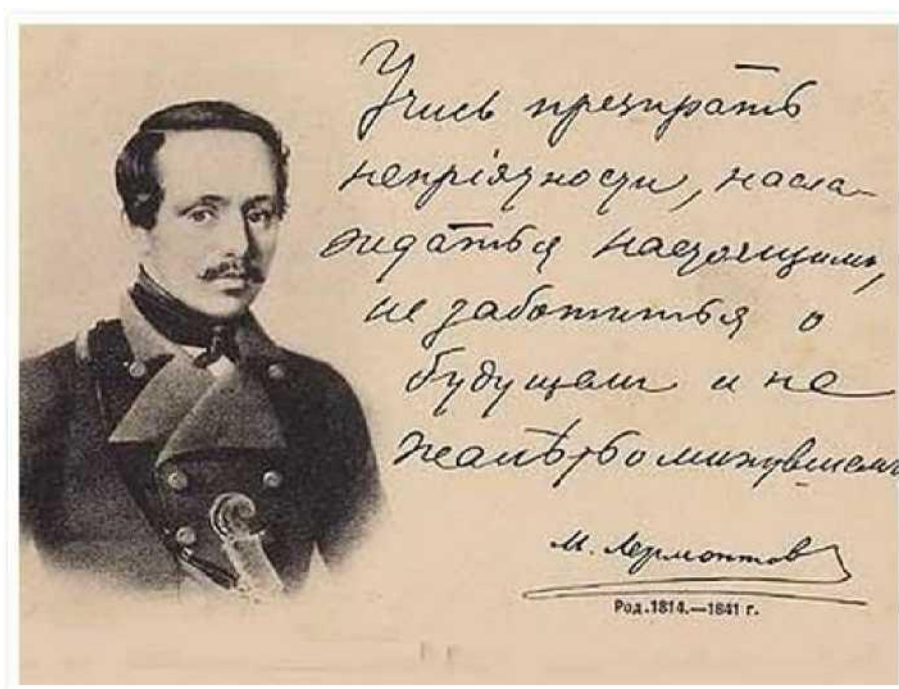 Учись презирать
непріятности, насла-
ждаться настоящимъ,
не заботиться о
будущемъ и не
жалѣть о минувшемъ
М. Лермонтовъ
Род. 1814.—1841 г.